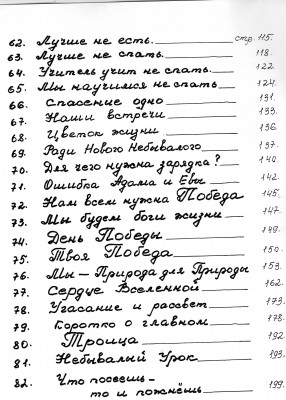 62. Лучше не есть. стр. 115.
63. Лучше не спать. 118.
64. Учитель учит не спать. 122.
65. Мы научимся не спать 124.
66. Спасение одно 131.
67. Наши встречи 133.
68. Цветок жизни 136.
69. Ради Нового Небывалого 139.
70. Для чего нужна зарядка? 140.
71. Ошибка Адама и Евы 142.
72. Нам всем нужна Победа 145.
73. Мы будем боги жизни 147.
74. День Победы 149.
75. Твоя Победа 150.
76. Мы – Природа для Природы 153.
77. Сердце Вселенной 162.
78. Угасание и рассвет 173.
79. Коротко о главном 178.
80. Троица 192.
81. Небывалый Урок 193.
82. Что посеешь –
то и пожнёшь 199.